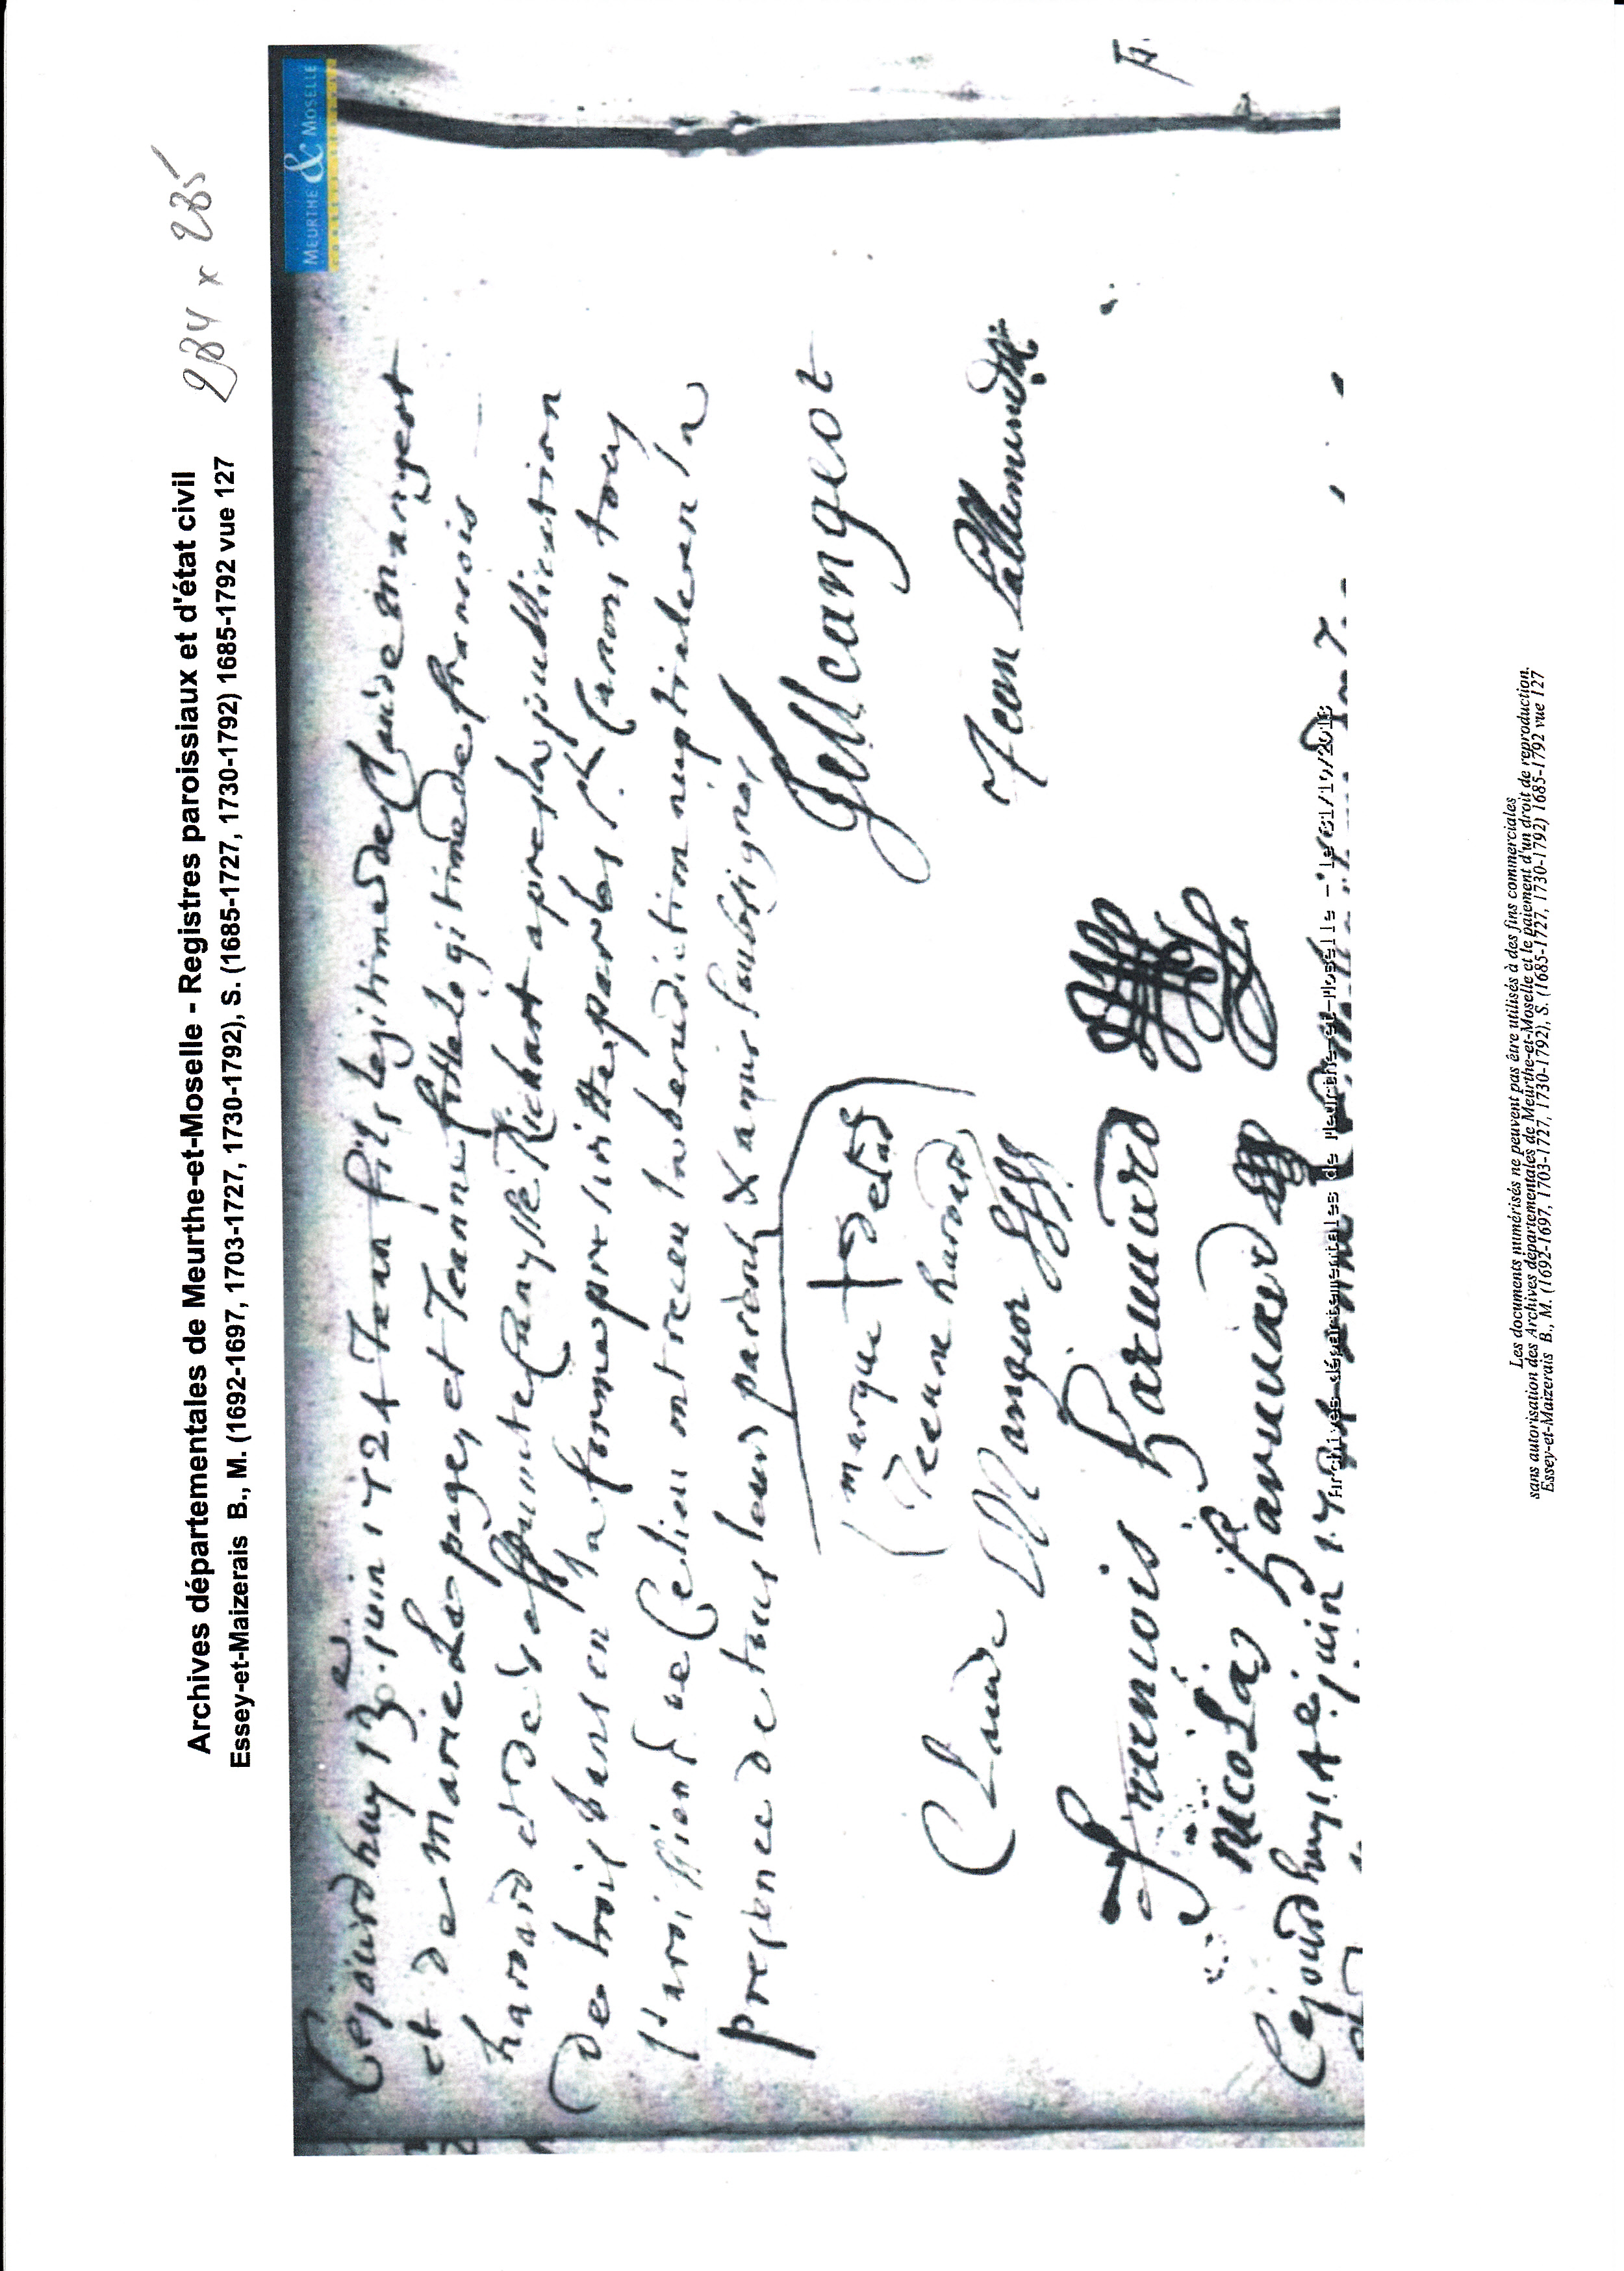 Archives départementales de Meurthe-et-Moselle - Registres paroissiaux et d'état civil
Essey-et-Maizerais B., M. (1692-1697, 1703-1727, 1730-1792), S. (1685-1727, 1730-1792) 1685-1792 vue 127
284 x 285
MEURTHE & MOSELLE
Cejourdhuy 13e juin 1724 Jean fils legitime de Claude mangeot
et de marie Le pages et Jeanne fille legitime de francois
harvard et de deffuncte Canylle Richart apres la publication
De trois bans en la forme prescritte par les Sts Canons tous
Paroissiens de Ce lieu ont receu la benediction nuptiale en la
presence de tous leurs parents & amis soubsignes
JMangeot
marque + de lad
Jeanne harvard
Claude Mangeot
Jean Lallemand
Francois harward
Nicolas harward
Cejourdhuy 14e juin 17
Archives départementales de Meurthe-et-Moselle - le 01/12/2018
Les documents numérisés ne peuvent pas être utilisés à des fins commerciales
sans autorisation des Archives départementales de Meurthe-et-Moselle et le paiement d'un droit de reproduction.
Essey-et-Maizerais B., M. (1692-1697, 1703-1727, 1730-1792), S. (1685-1727, 1730-1792) 1685-1792 vue 127